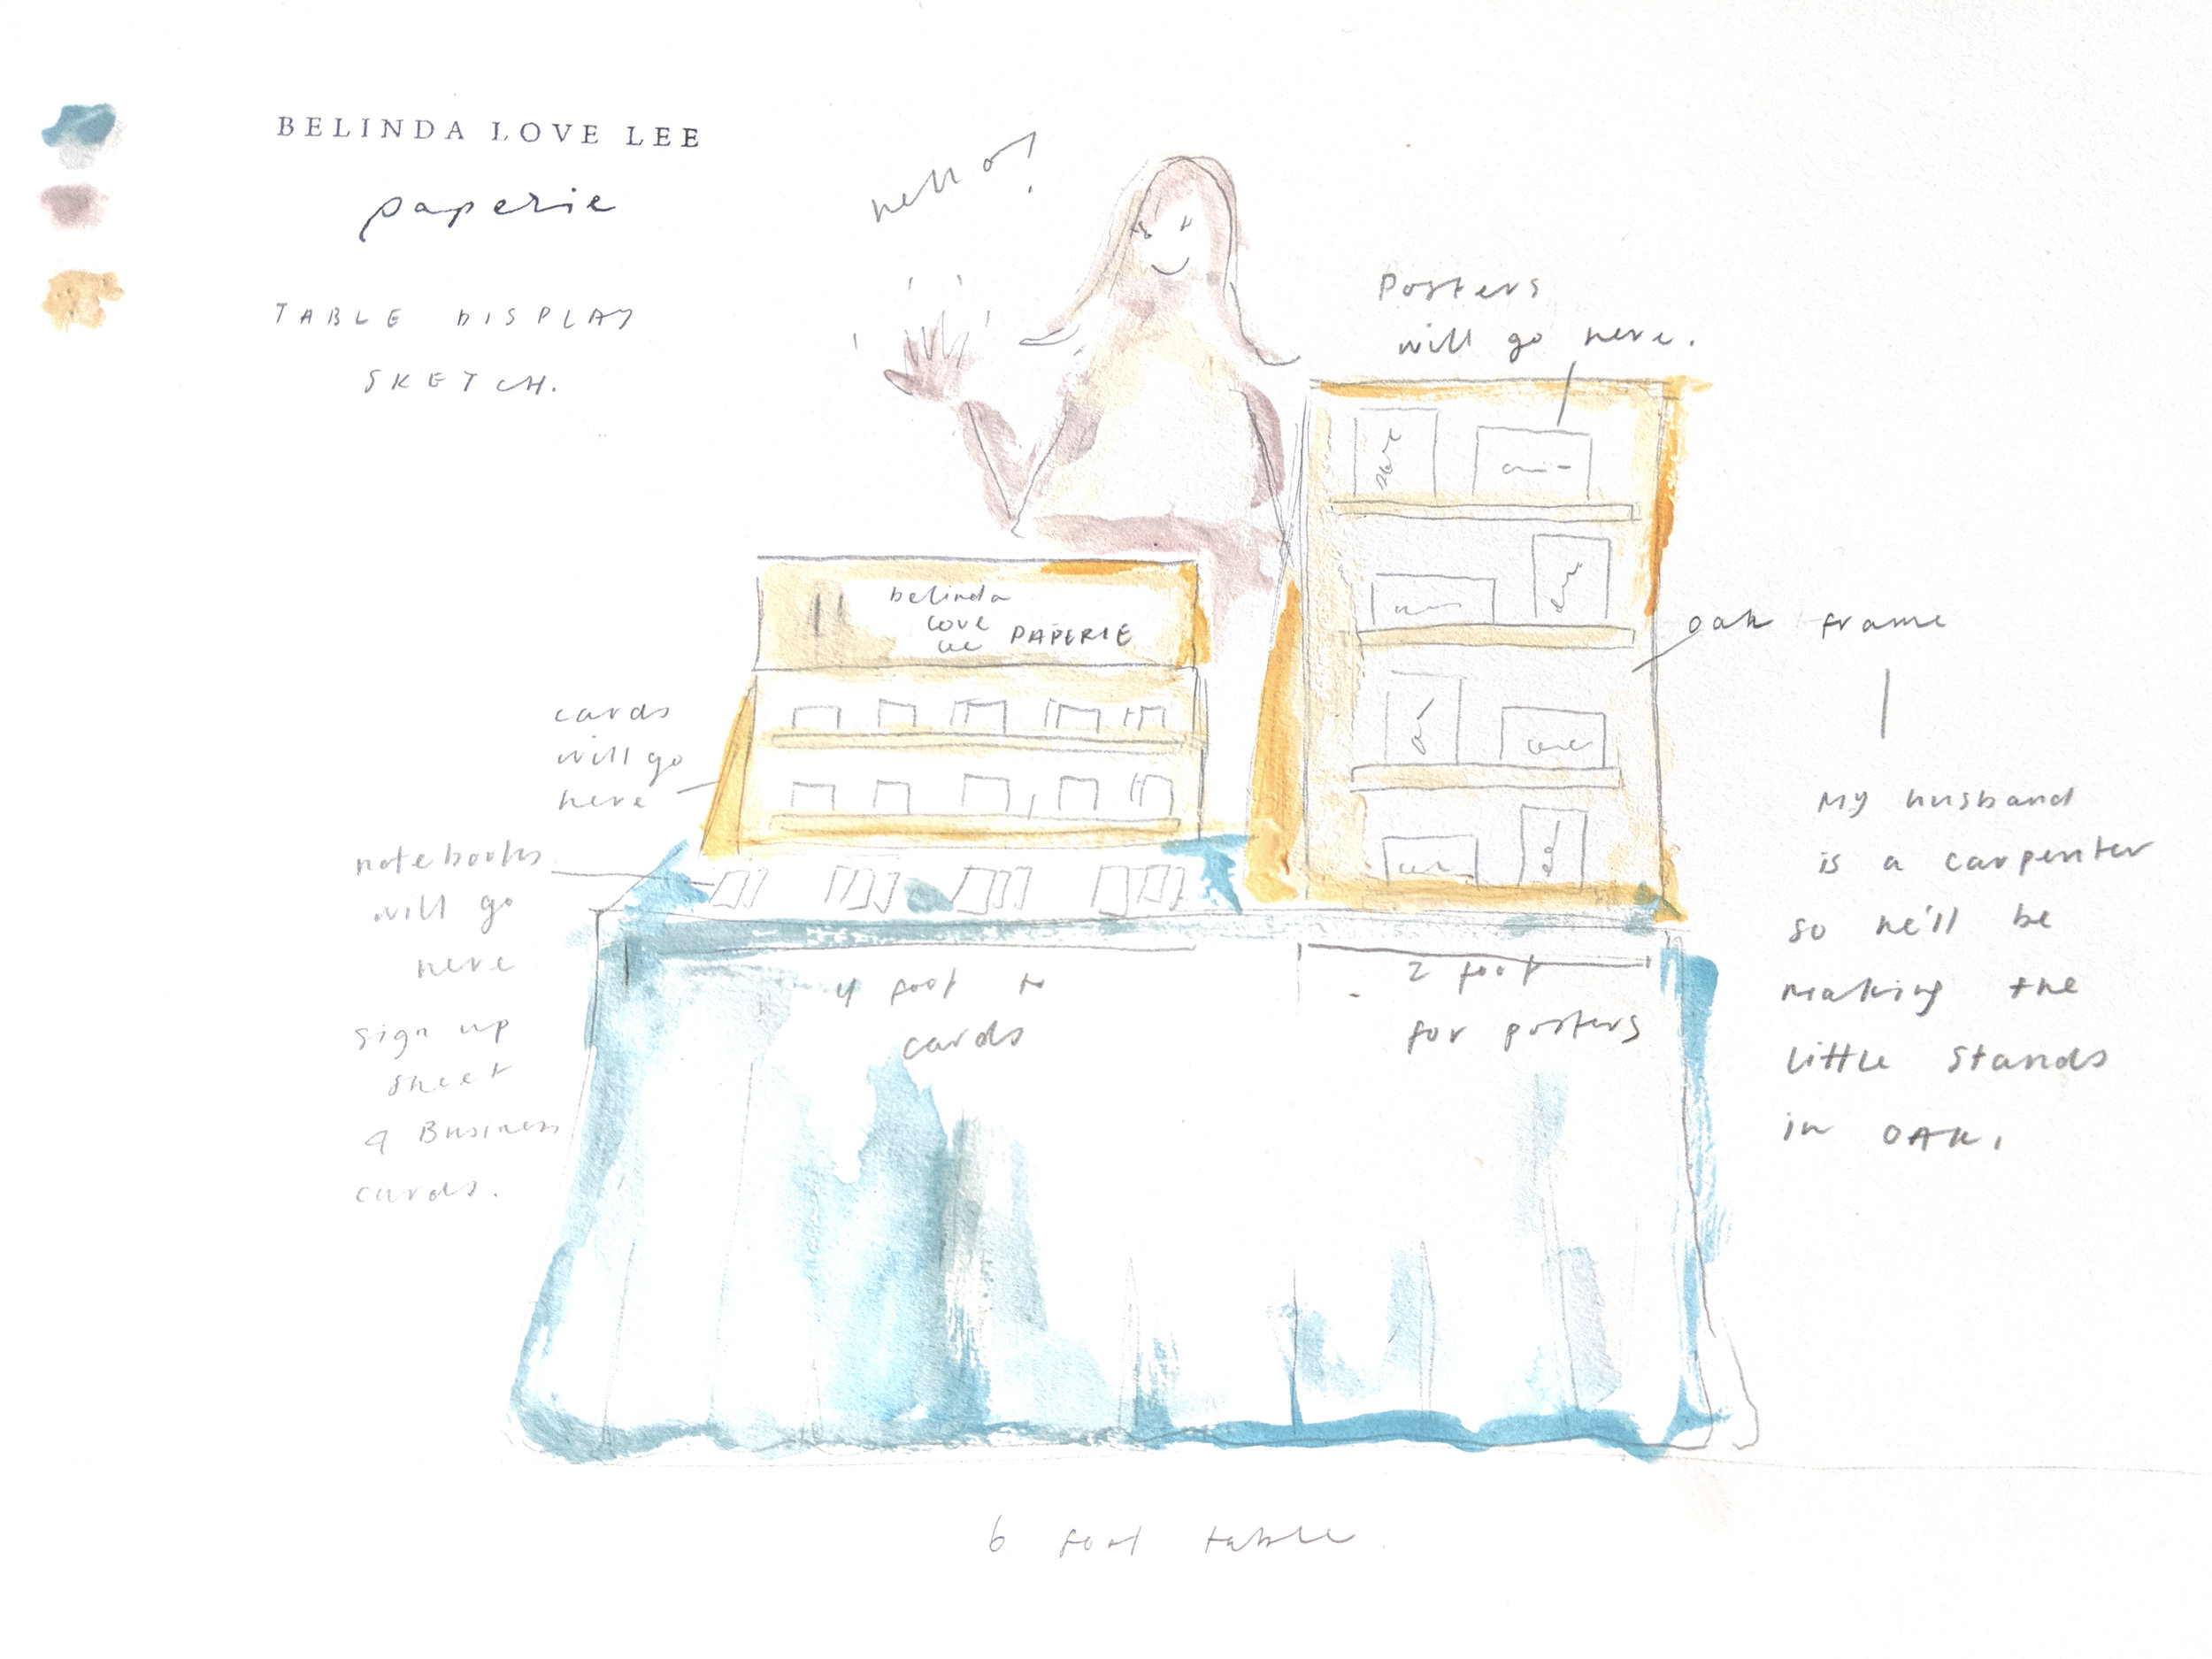 BELINDA LOVE LEE
paperie
TABLE DISPLAY
SKETCH.
hello!
Posters
will go here.
belinda
love
lee PAPERIE
oak frame
cards
will go
here
notebooks
will go
here
sign up
sheet
& Business
cards.
My husband
is a carpenter
so he'll be
making the
little stands
in OAK.
4 foot
cards
2 foot
for posters
6 foot table